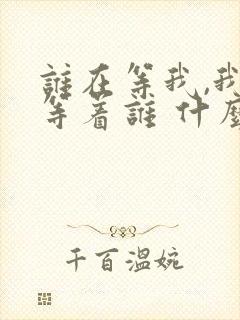 誰在等我,我
等着誰 什麼
千百溫婉